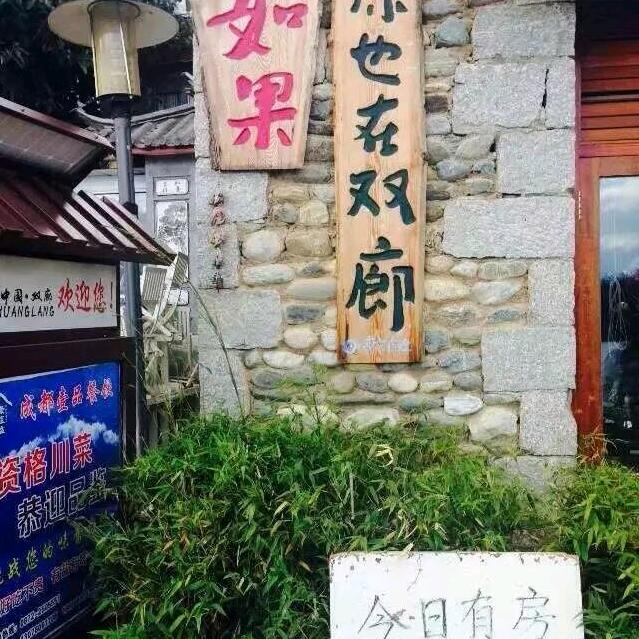 如果
你也在双廊
中国·双廊
欢迎您!
SHUANGLANG
成都壹品餐饮
资格川菜
恭迎品鉴
今日有房